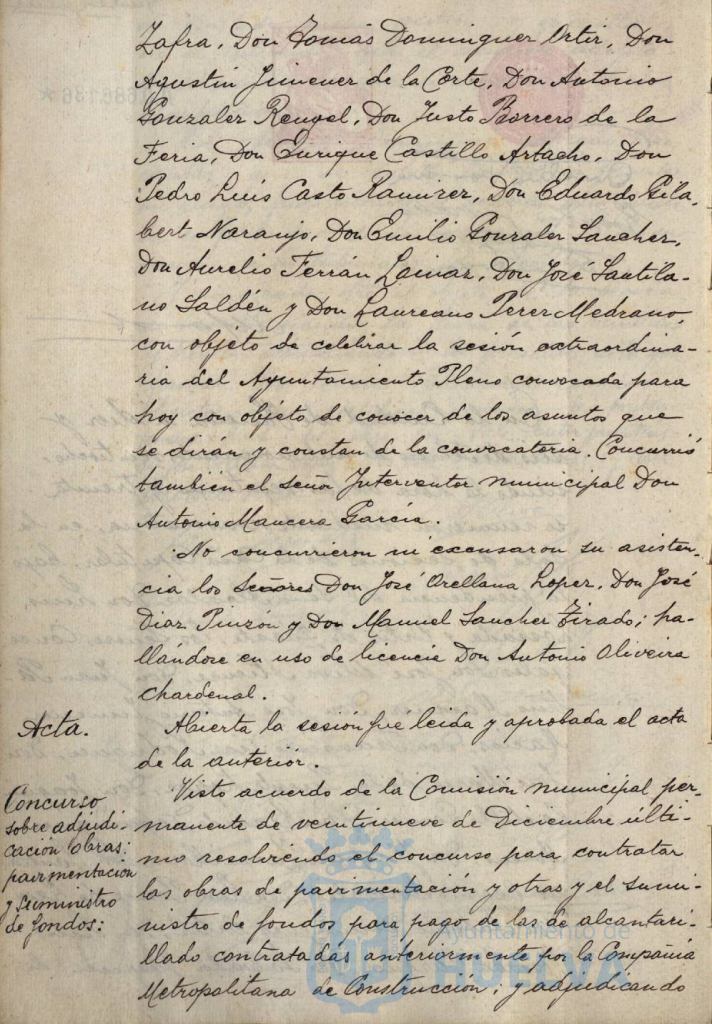 Zafra, Don Tomás Dominguez Ortiz, Don
Agustin Jimenez de la Corte, Don Antonio
Gonzalez Rengel, Don Justo Borrero de la
Feria, Don Enrique Castillo Artacho, Don
Pedro Luis Casto Ramirez, Don Eduardo Gila-
bert Naranjo, Don Emilio Gonzalez Sanchez,
Don Aurelio Ferrán Lainaz, Don José Santila-
no Saldén y Don Laureano Perez Medrano,
con objeto de celebrar la sesión extraordina-
ria del Ayuntamiento Pleno convocada para
hoy con objeto de conocer de los asuntos que
se dirán y constan de la convocatoria. Concurrió
también el señor Interventor municipal Don
Antonio Mancera García.
No concurrieron ni excusaron su asisten-
cia los Señores Don José Orellana Lopez, Don José
Diaz Pinzón y Don Manuel Sanchez Tirado; ha-
llándose en uso de licencia Don Antonio Oliveira
Chardenal.
Acta.
Abierta la sesión fué leida y aprobada el acta
de la anteriór.
Concurso
sobre adjudi-
cación obras:
pavimentación
y suministro
de fondos:
Visto acuerdo de la Comisión municipal per-
manente de veintinueve de Diciembre últi-
mo resolviendo el concurso para contratar
las obras de pavimentación y otras y el sumi-
nistro de fondos para pago de las de alcantari-
llado contratadas anteriormente por la Compañia
Metropolitana de Construcción; y adjudicando
Ayuntamiento de
HUELVA